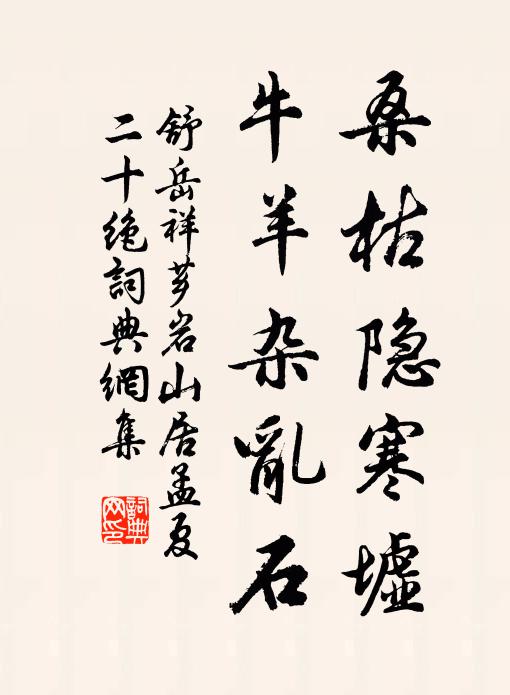 桑枯隐寒墟
牛羊杂亂石
舒岳祥芗岩山居孟夏
二十绝詞典網集
詞典
网印